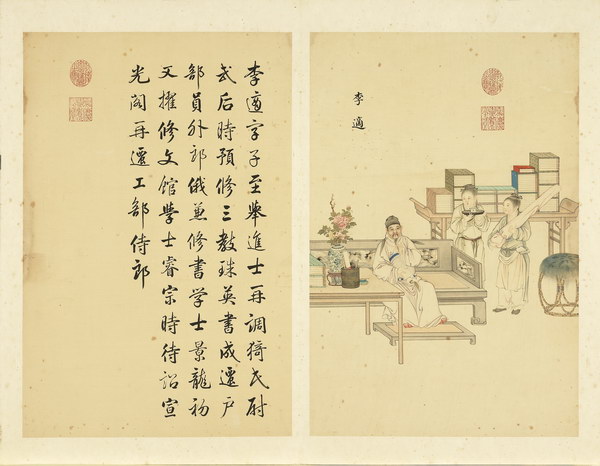 李適
李適字子至舉進士再調猗氏尉
武后時預修三教珠英書成遷戶
部員外郎俄兼修書學士景龍初
又擢修文館學士睿宗時待詔宣
光閣再遷工部侍郎